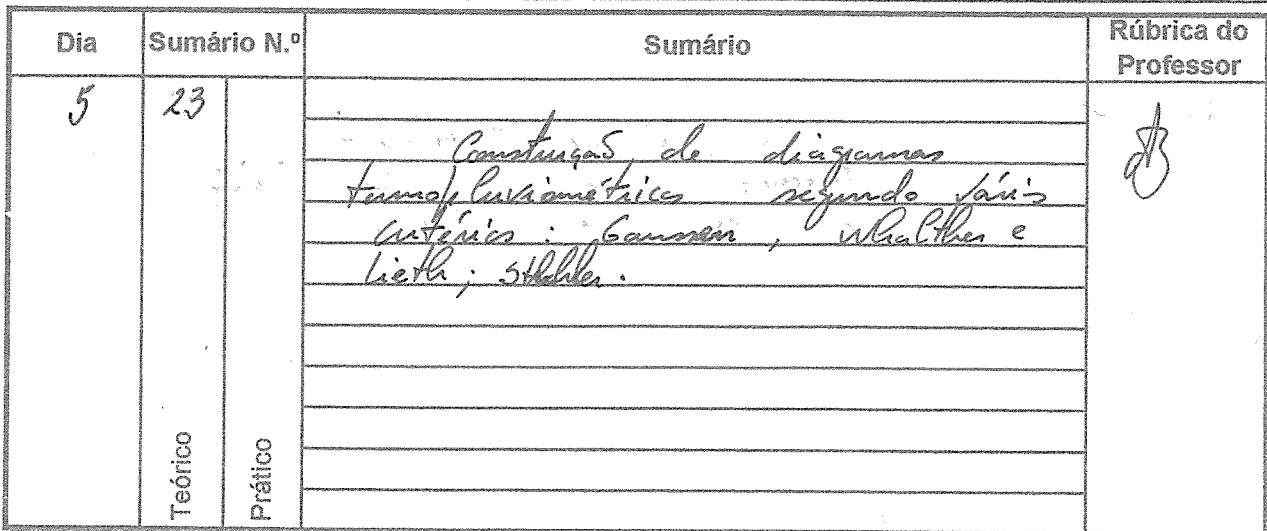 Dia Sumário N.º Sumário Rúbrica do Professor
5 23
Construção de diagramas
termopluviométricos segundo vários
critérios: Gaussen, Whalther e
Lieth;
Teórico
Prático